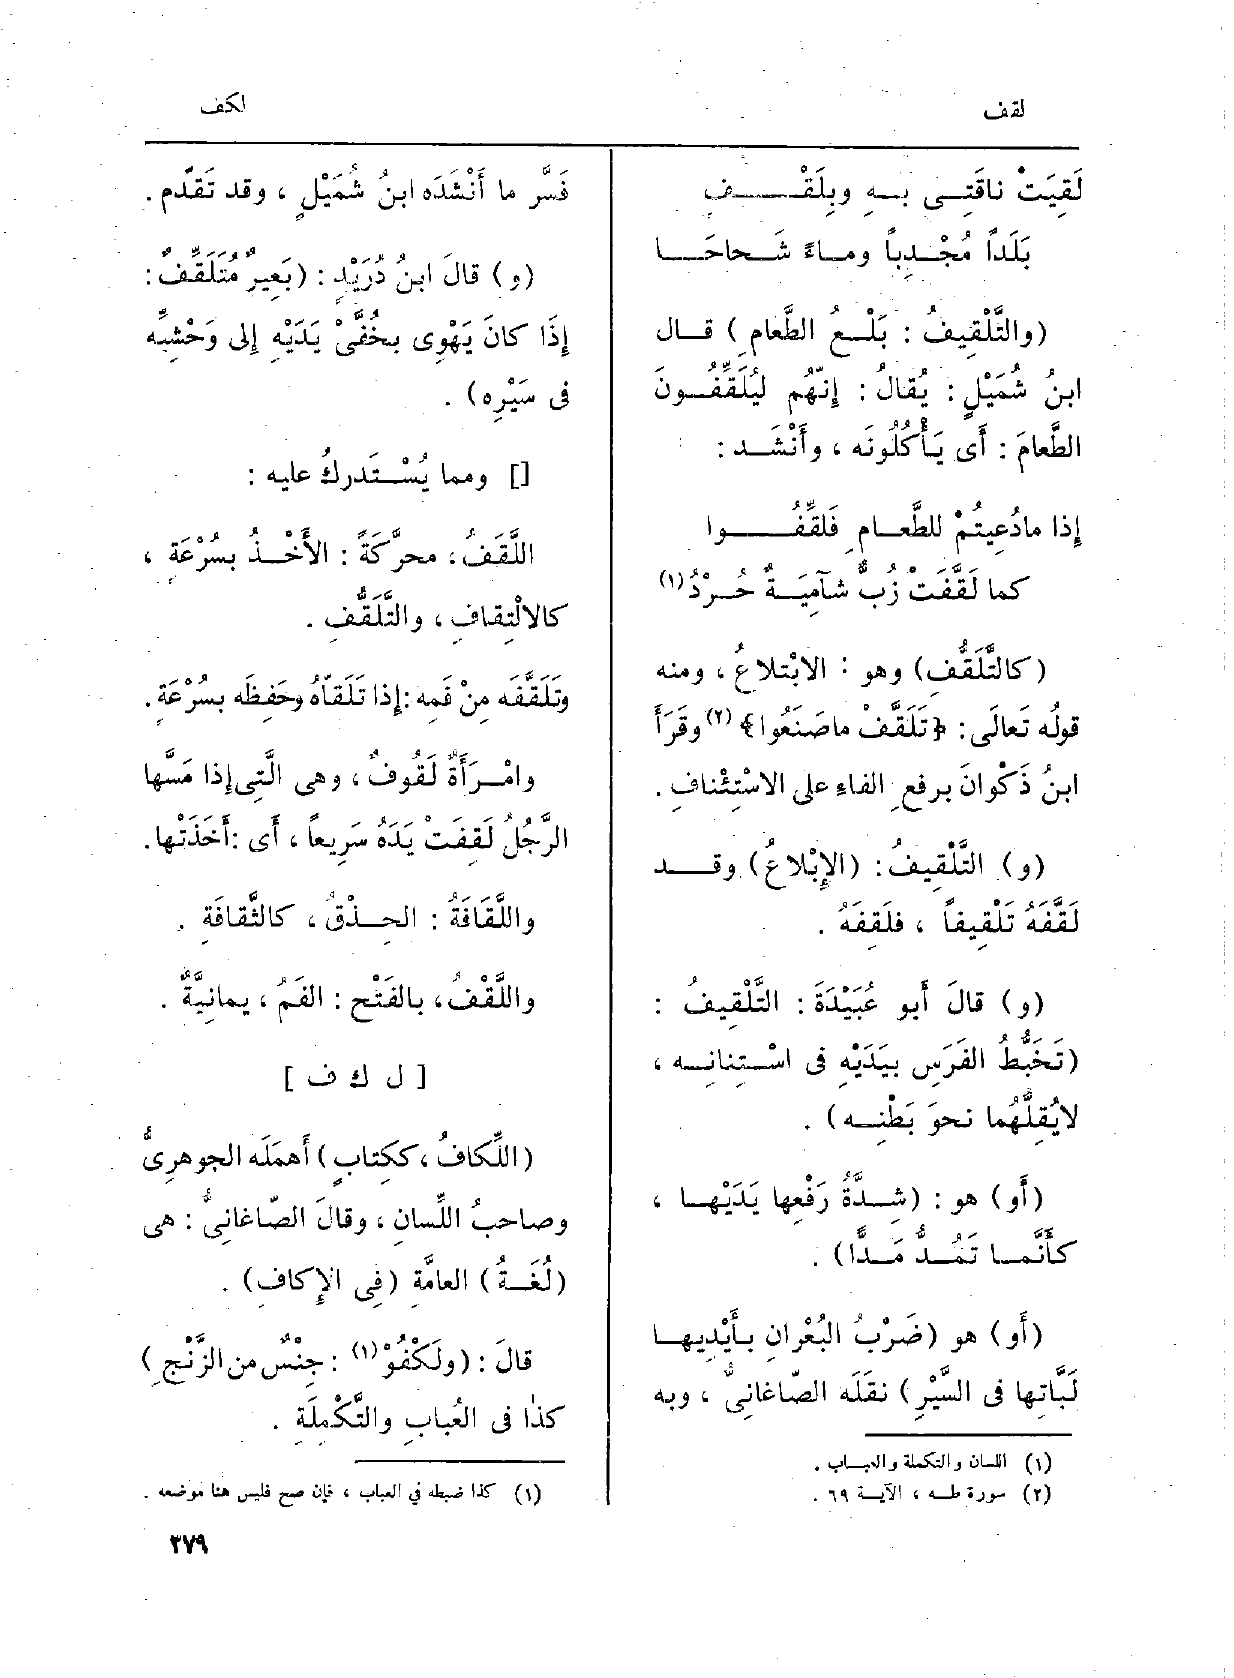 لقف
لكف
لَقِيَتْ ناقَتِى بهِ وبِلَقْفِ
بَلَداً مُجْدِباً وماءً شَحاحَا
(والتَّلْقِيفُ : بَلْعُ الطَّعامِ) قال
ابنُ شُمَيْلٍ : يُقالُ : إِنّهُم لَيُلَقِّفُونَ
الطَّعامَ : أَى يَأْكُلُونَه ، وأَنْشَد :
إذا مادُعِيتُمْ للطَّعامِ فَلَقِّفُوا
كما لَقَّفَتْ زُبٌّ شآمِيَةٌ حُرْدُ (١)
(كالتَّلَقُّفِ) وهو : الابْتِلاعُ ، ومنه
قولُه تَعالَى : ﴿تَلَقَّفْ ماصَنَعُوا﴾ (٢) وقَرَأَ
ابنُ ذَكْوانَ برفعِ الفاءِ على الاسْتِئْنافِ .
(و) التَّلْقِيفُ : (الإِبْلاعُ) وقد
لَقَّفَهُ تَلْقِيفاً ، فلَقِفَهُ .
(و) قالَ أَبو عُبَيْدَةَ : التَّلْقِيفُ :
(تَخَبُّطُ الفَرَسِ بيَدَيْهِ فى اسْتِنانِه ،
لايُقِلُّهُما نحوَ بَطْنِه) .
(أَو) هو : (شِدَّةُ رَفْعِها يَدَيْها ،
كأَنَّما تَمُدُّ مَدًّا) .
(أَو) هو (ضَرْبُ البُعْرانِ بأَيْدِيها
لَبَّاتِها فى السَّيْرِ) نقَلَه الصّاغانِىُّ ، وبه
(١) اللسان والتكملة والعباب .
(٢) سورة طه ، الآية ٦٩ .
فَسَّر ما أَنْشَدَه ابنُ شُمَيْلٍ ، وقد تَقَدَّم .
(و) قالَ ابنُ دُرَيْدٍ : (بَعِيرٌ مُتَلَقِّفٌ :
إِذَا كانَ يَهْوِى بخُفَّىْ يَدَيْهِ إلى وَحْشِيِّه
فى سَيْرِه) .
[] ومما يُسْتَدركُ عليه :
اللَّقَفُ ، محرَّكَةً : الأَخْذُ بسُرْعَةٍ ،
كالالْتِقافِ ، والتَّلَقُّفِ .
وتَلَقَّفَه مِنْ فَمِه : إذا تَلَقّاهُ وحَفِظَه بسُرْعَةٍ .
وامْرَأَةٌ لَقُوفٌ ، وهى الَّتِى إذا مَسَّها
الرَّجُلُ لَقِفَتْ يَدَهُ سَرِيعاً ، أَى : أَخَذَتْها .
واللَّقَافَةُ : الحِذْقُ ، كالثَّقافَةِ .
واللَّقْفُ ، بالفَتْحِ : الفَمُ ، يمانِيَّةٌ .
[ ل ك ف ]
(اللِّكافُ ، ككِتابٍ) أَهمَلَه الجوهرِىُّ
وصاحبُ اللِّسانِ ، وقالَ الصّاغانِىُّ : هى
(لُغَةُ) العامَّةِ (فِى الإِكافِ) .
قالَ : (ولَكْفُوْ (١) : جِنْسٌ من الزَّنْجِ)
كذا فى العُبابِ والتَّكْمِلَةِ .
(١) كذا ضبطه في العباب ، فإن صح فليس هنا موضعه .
٣٧٩